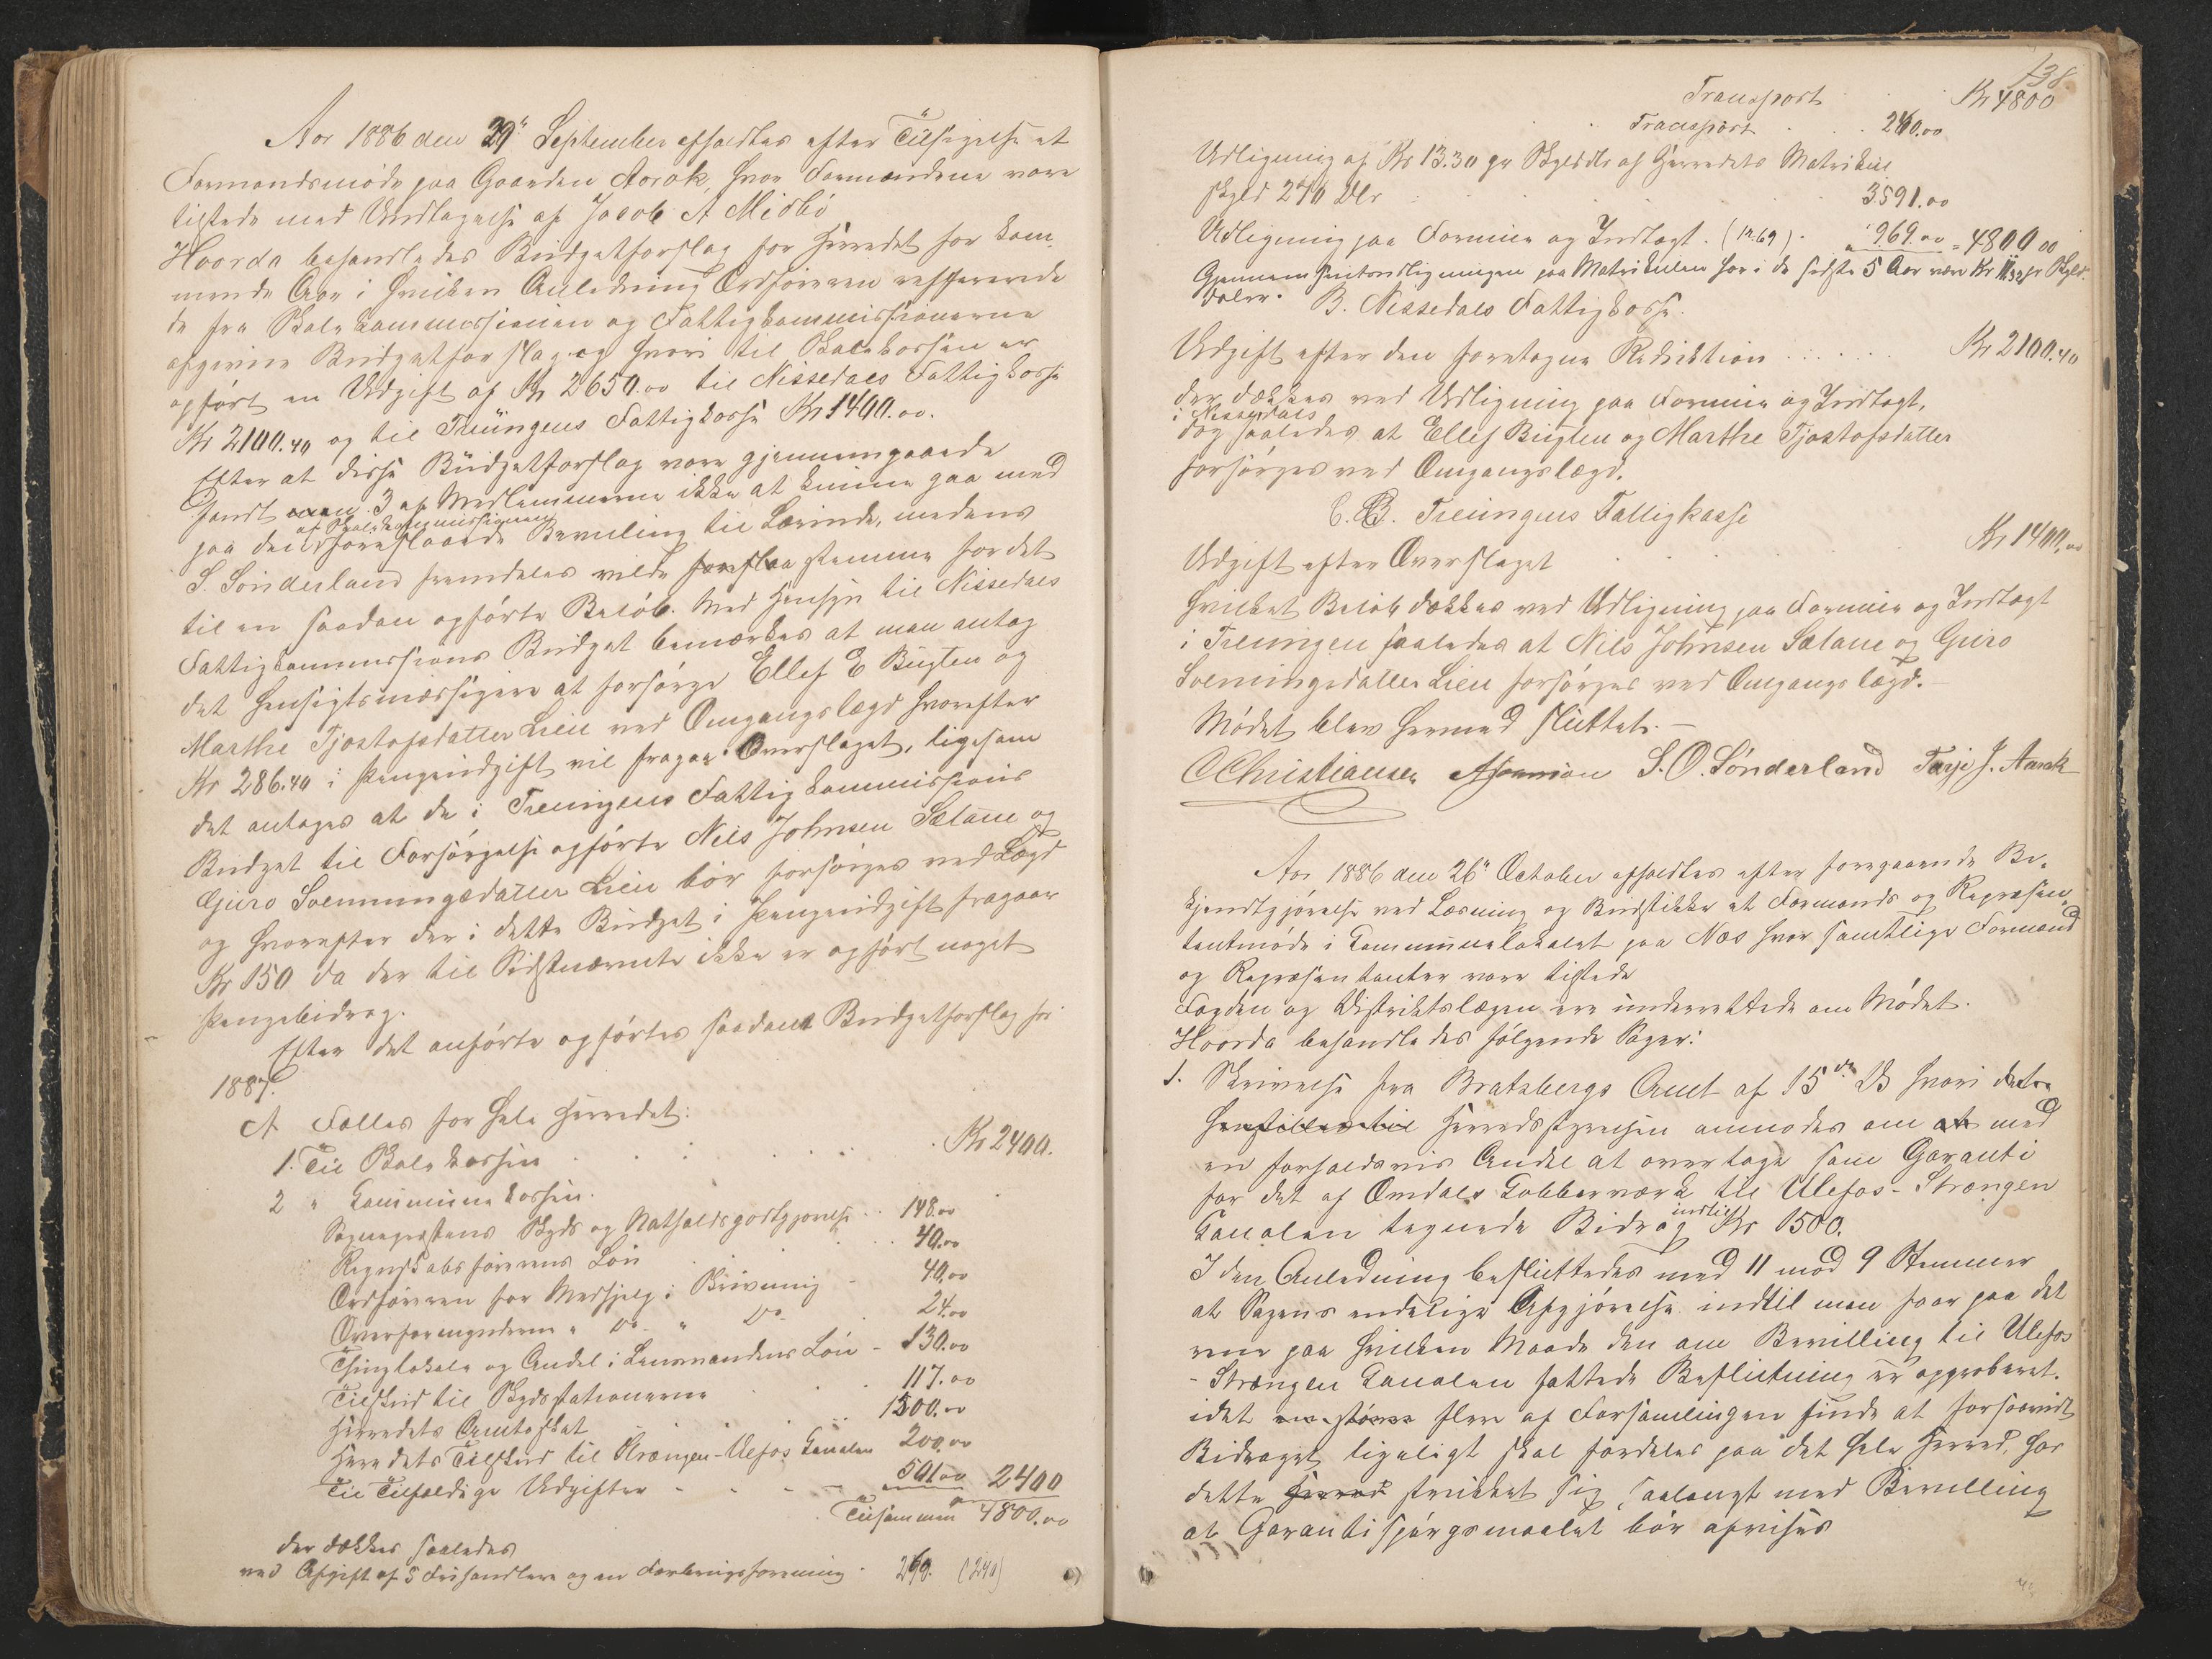 Aar 1886 den 29de September afholdtes efter Tilsigelse et
Formandsmöde paa Gaarden Aarak, hvor Formændene vare
tilstede med Undtagelse af Jacob A Midbö
Hvorda behandledes Budgetforslag for Herredet for kom-
mende Aar i hvilken Anledning Ordföreren refererede
de fra Skolekommissionen og Fattigkommissionerne
afgivne Budgetforslag og hvori til Skolekassen er
opfört en Udgift af Kr 2650.00 til Nissedals Fattigkasse
Kr 2100.40 og til Treungens Fattigkasse Kr 1400.00.
Efter at disse Budgetforslag vare gjennemgaaede
fandt 3 af Medlemmerne ikke at kunne gaa med
af Skolekommissionen
paa den foreslaaede Bevilling til Lærinde, medens
S. Sönderland fremdeles vilde foreslaa stemme for det
til en saadan opförte Belöb. Med Hensyn til Nissedals
Fattigkommissions Budget bemærkes at man antog
det hensigtsmæssigere at forsörge Ellef E Bugten og
Marthe Tjostofsdatter Lien ved Omgangslægd hvorefter
Kr 286.40 i Pengeudgift vil fragaa i Overslaget, ligesom
det antoges at de i Treungens Fattigkommissions
Budget til Forsörgelse opförte Nils Johnsen Sælane og
Guro Svenningsdatter Lien bör forsörges ved Lægd
og hvorefter der i dette Budget i Pengeudgift fragaar
Kr 150 da der til Sidstnævnte ikke er opfört noget
Pengebidrag.
Efter det anförte opförtes saadant Budgetforslag for
1887.
A Fælles for hele Herredet:
1. Til Skolekassen Kr 2400.
2 " Kommunekassen.
Sognepræstens Skyds og Natholdsgodtgjörelse 148.00
Regnskabsförerens Lön 40.00
Ordföreren for Medhjelp i Skrivning 40.00
Overformynderen " Do " Do 24.00
Thinglokale og Andel i Lensmandens Lön - 130.00
Tilskud til Skydsstationerne 117.00
Herredets Amtsskat 1200.00
Herredets Tilskud til Strængen-Ulefos Kanalen 200.00
Til Tilfældige Udgifter 501.00 2400
Tilsammen 4800.00
der dækkes saaledes
ved Afgift af 5 Frihandlere og en Forbrugsforening 240. (240)
138
Transport Kr 4800
Transport 240.00
Udligning af Kr 13.30 pr Skylddlr af Herredets Matrikul
skyld 270 Dlr 3591.00
Udligning paa Formue og Indtægt. (1269) 969.00 = 4800 00
Gjennemsnitsudligningen paa Matrikulen har i de sidste 5 Aar være Kr pr Skyld-
daler.
B. Nissedals Fattigkasse.
Udgift efter den foretagne Reduktion Kr 2100.40
der dækkes ved Udligning paa Formue og Indtægt,
i Nissedals
dog saaledes at Ellef Bugten og Marthe Tjostofsdatter
forsörges ved Omgangslægd.
C. B. Treungens Fattigkasse
Udgift efter Overslaget Kr 1400.00
hvilket Belöb dækkes ved Udligning paa Formue og Indtægt
i Treungen saaledes at Nils Johnsen Sælane og Guro
Svenningsdatter Lien forsörges ved Omgangslægd.
Mödet blev hermed sluttet.
C Christiansen S. O. Sönderland Tarje J. Aarak
Aar 1886 den 26de October afholdtes efter foregaaende Be-
kjendtgjörelse ved Læsning og Budstikke et Formands og Repræsen-
tantmöde i Kommunelokalet paa Næs hvor samtlige Formænd
og Repræsentanter vare tilstede
Fogden og Distriktslægen ere underrettede om Mödet.
Hvorda behandledes fölgende Sager:
1. Skrivelse fra Bratsbergs Amt af 15de Ds hvori dette
henstilles til Herredsstyrelsen anmodes om at med
en forholdsvis Andel at overtage som Garanti
for det af Omdals Kobberværk til Ulefos-Strængen
Kanalen tegnede Bidrag indtil Kr 1500.
I den Anledning besluttedes med 11 mod 9 Stemmer
at Sagens endelige Afgjörelse indtil man faar paa det
rene paa hvilken Maade den om Bevilling til Ulefos
-Strængen Kanalen fattede Beslutning er approberet.
idet en större flere af Forsamlingen finde at forsaavidt
Bidraget ligeligt skal fordeles paa det hele Herred, har
dette Herred strukket sig saalangt med Bevilling
at Garantispörgsmaalet bör afvises